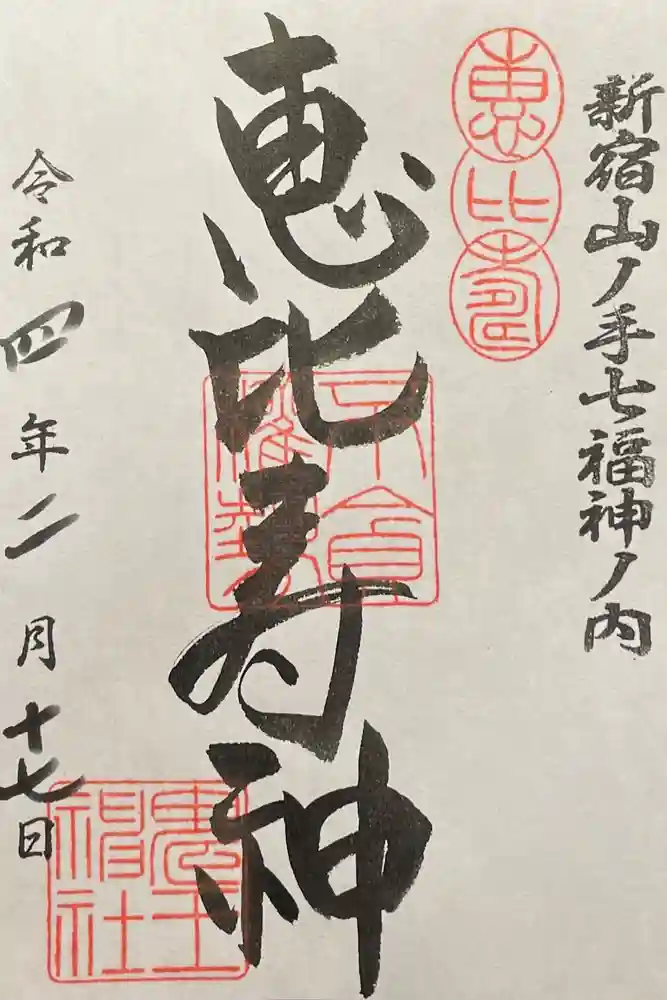 新宿山ノ手七福神ノ内
恵比寿
恵比寿神
鬼王
神社
令和四年二月十七日